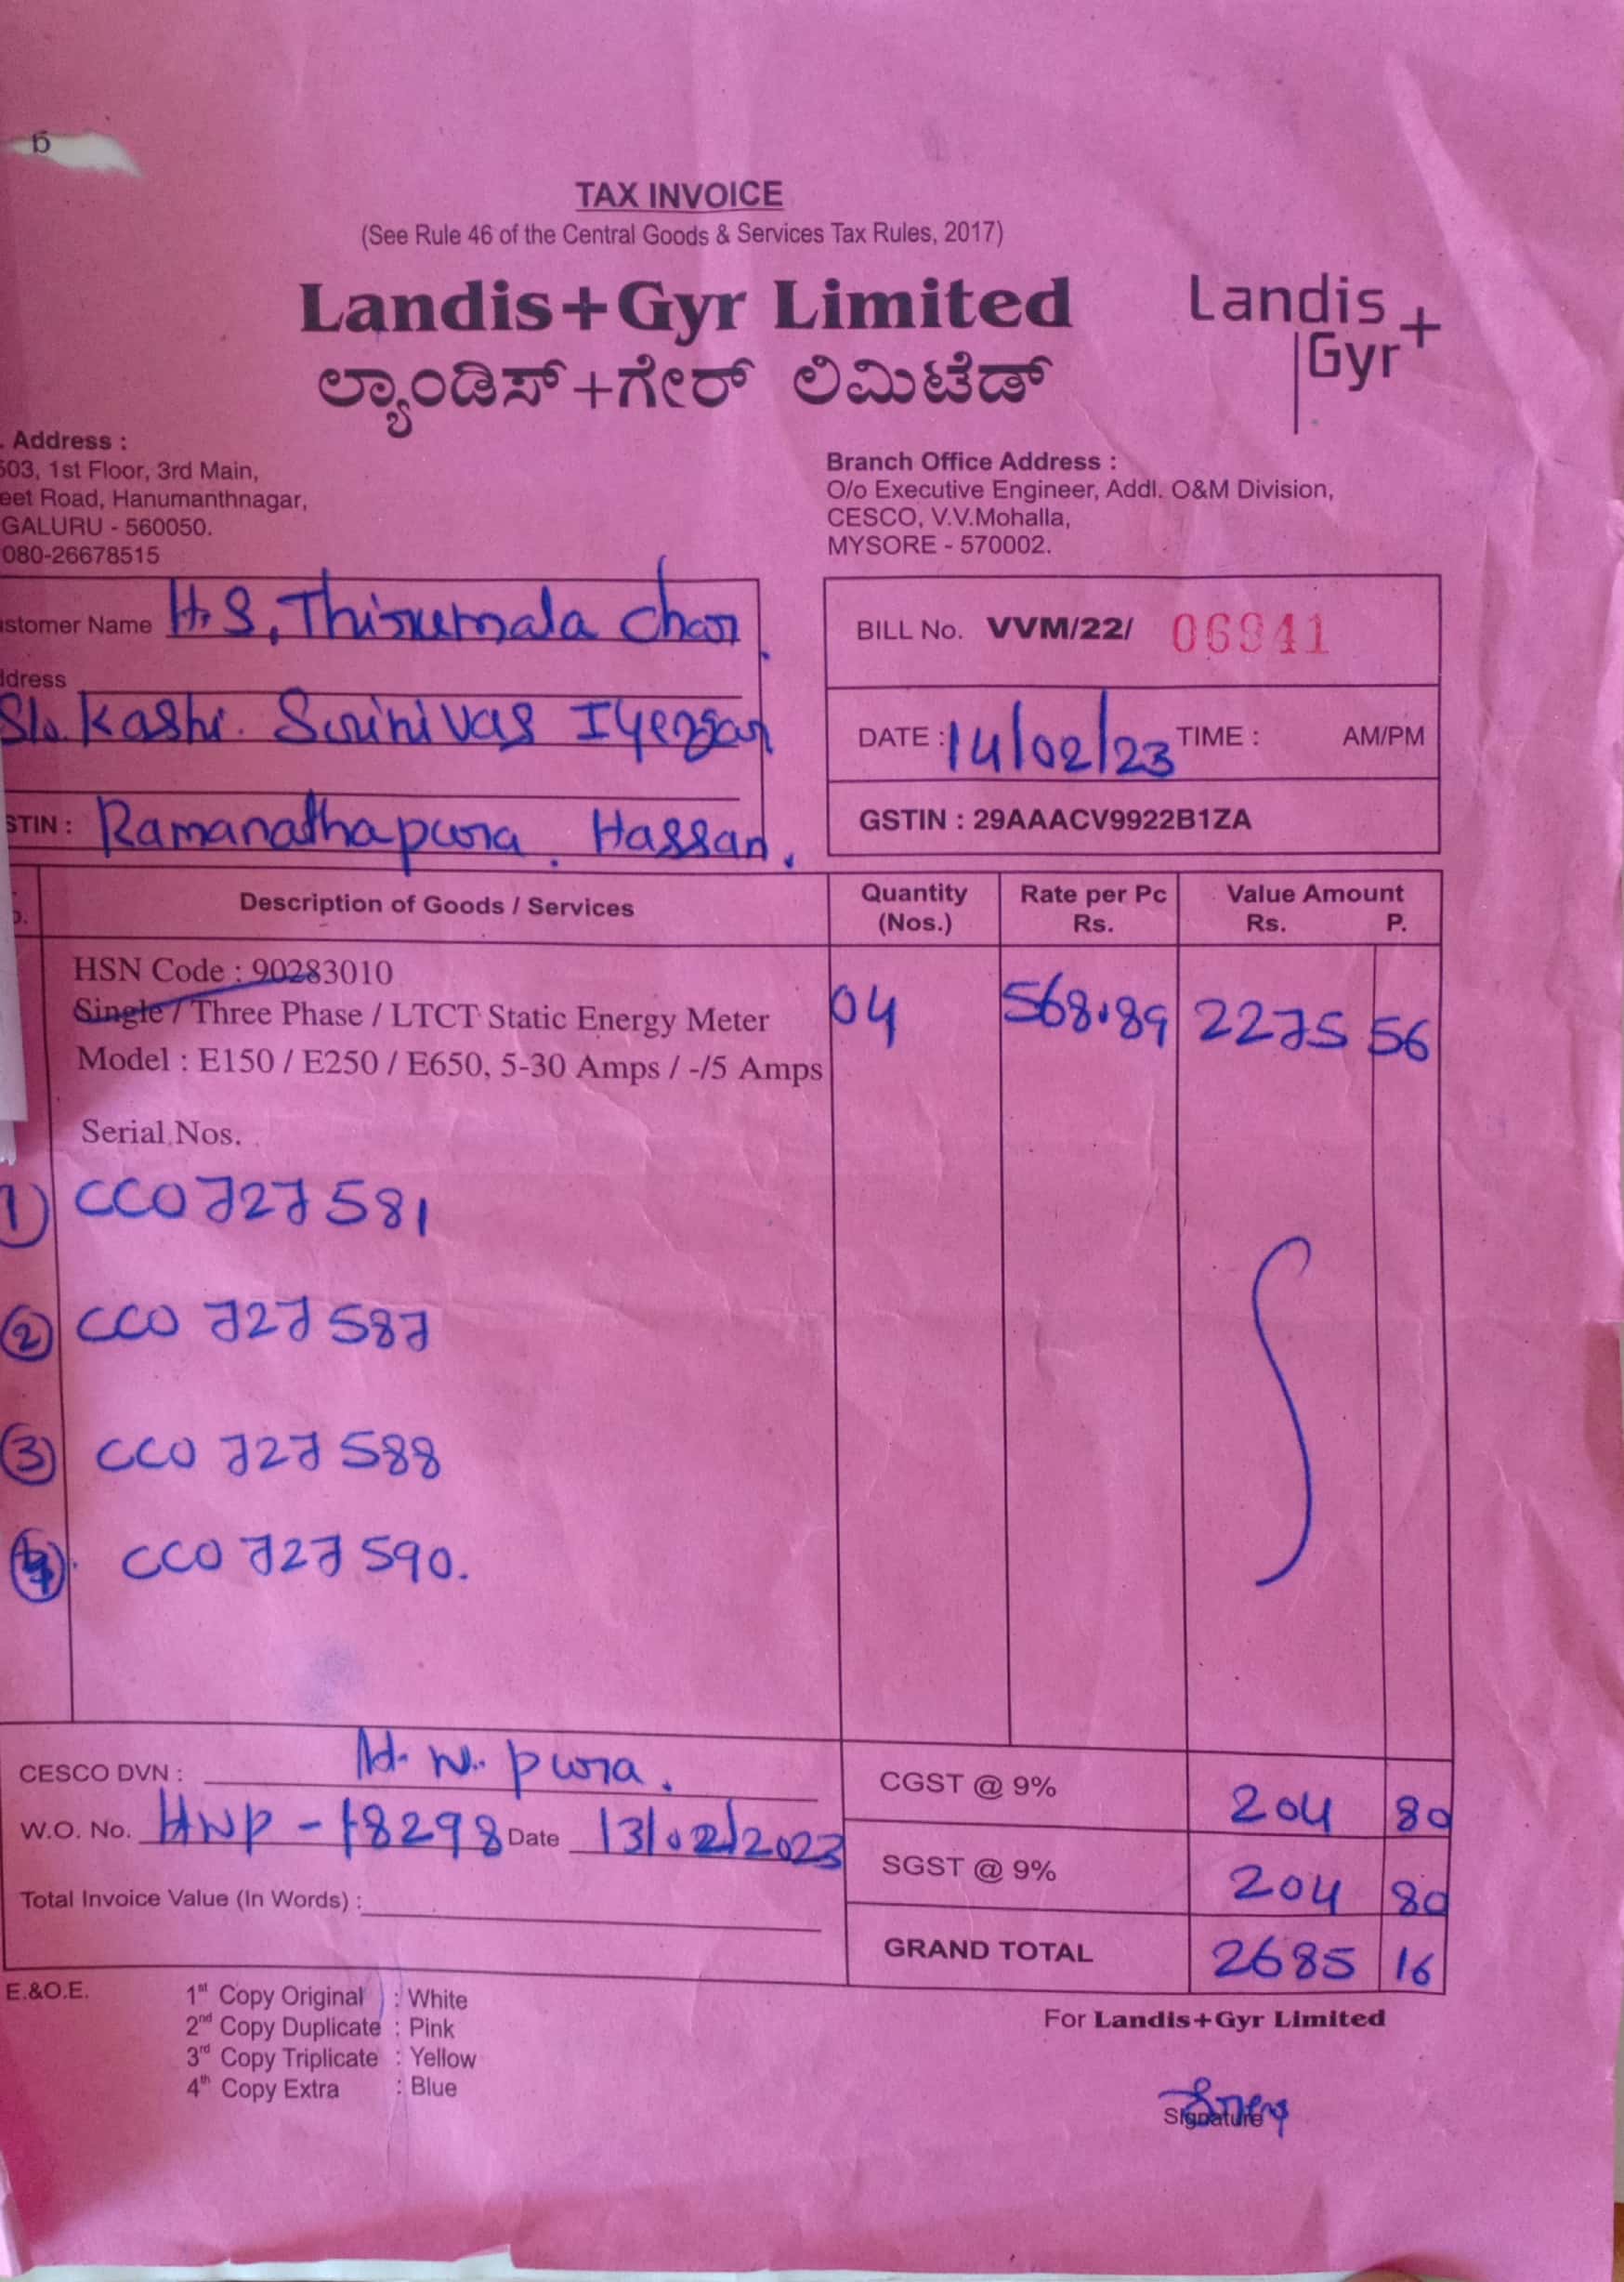 TAX INVOICE
(See Rule 46 of the Central Goods & Services Tax Rules, 2017)
Landis+Gyr Limited
ಲ್ಯಾಂಡಿಸ್+ಗೇರ್ ಲಿಮಿಟೆಡ್
Landis
Gyr+
. Address :
503, 1st Floor, 3rd Main,
eet Road, Hanumanthnagar,
GALURU - 560050.
080-26678515
Branch Office Address :
O/o Executive Engineer, Addl. O&M Division,
CESCO, V.V.Mohalla,
MYSORE - 570002.
stomer Name H.S, Thirumala Chari
ddress
S/o. Kashi. Srinivas Iyengar
STIN : Ramanathapura. Hassan.
BILL No. VVM/22/ 06941
DATE : 14/02/23 TIME : AM/PM
GSTIN : 29AAACV9922B1ZA
Description of Goods / Services Quantity (Nos.) Rate per Pc Rs. Value Amount Rs. P.
HSN Code : 90283010
Single / Three Phase / LTCT Static Energy Meter 04 568.89 2275 56
Model : E150 / E250 / E650, 5-30 Amps / -/5 Amps
Serial Nos.
1) CC0727581
2) CC0727587
3) CC0727588
4) CC0727590.
CESCO DVN : H. N. pura.
W.O. No. HNP - 18298 Date 13/02/2023
Total Invoice Value (In Words) :
CGST @ 9% 204 80
SGST @ 9% 204 80
GRAND TOTAL 2685 16
E.&O.E.
1st Copy Original : White
2nd Copy Duplicate : Pink
3rd Copy Triplicate : Yellow
4th Copy Extra : Blue
For Landis+Gyr Limited
Signature